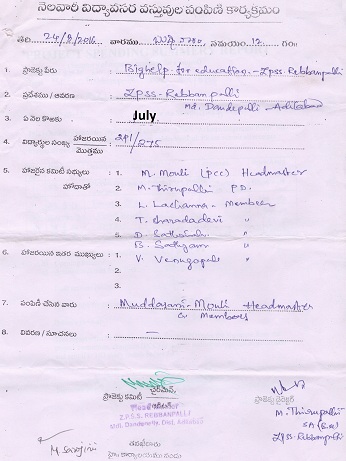 నెలవారీ విద్యావసర వస్తువుల పంపిణీ కార్యక్రమం
తేది. 24/8/2016 వారము బుధవారం, సమయం. 12 గం॥
1. ప్రాజెక్టు పేరు : Bighelp for education. - Zpss. Rebbanpalli
2. ప్రదేశము / ఆవరణ : Zpss. Rebbanpalli
Md. Dandepalli Adilabad
3. ఏ నెల కొఱకు : July
4. విద్యార్థుల సంఖ్య హాజరయిన / మొత్తము : 271/275
5. హాజరైన కమిటీ సభ్యులు హోదాతో : 1. M. Mouli (pcc) Headmaster
2. M. Thirupalli P.D.
3. L. Lachanna - Member
4. T. Sharadadevi "
5. D. Sathaiah "
B. Sathyam "
6. హాజరయిన ఇతర ముఖ్యులు : 1. V. Venugopal "
2.
3.
7. పంపిణీ చేసిన వారు : Muddasani - Mouli Headmaster
& Members
8. వివరణ / సూచనలు : —
ప్రాజెక్టు కమిటీ ఛైర్మన్,
ప్రాజెక్టు డైరెక్టర్
Head Master
Z.P.S.S. REBBANPALLI
Md. Dandepally, Dist. Adilabad
M. Thirupalli
SA (B.S)
Zpss. Rebbanpalli
M. Sarojini
తనఖీదారు
హెం కార్యాలయము నందు